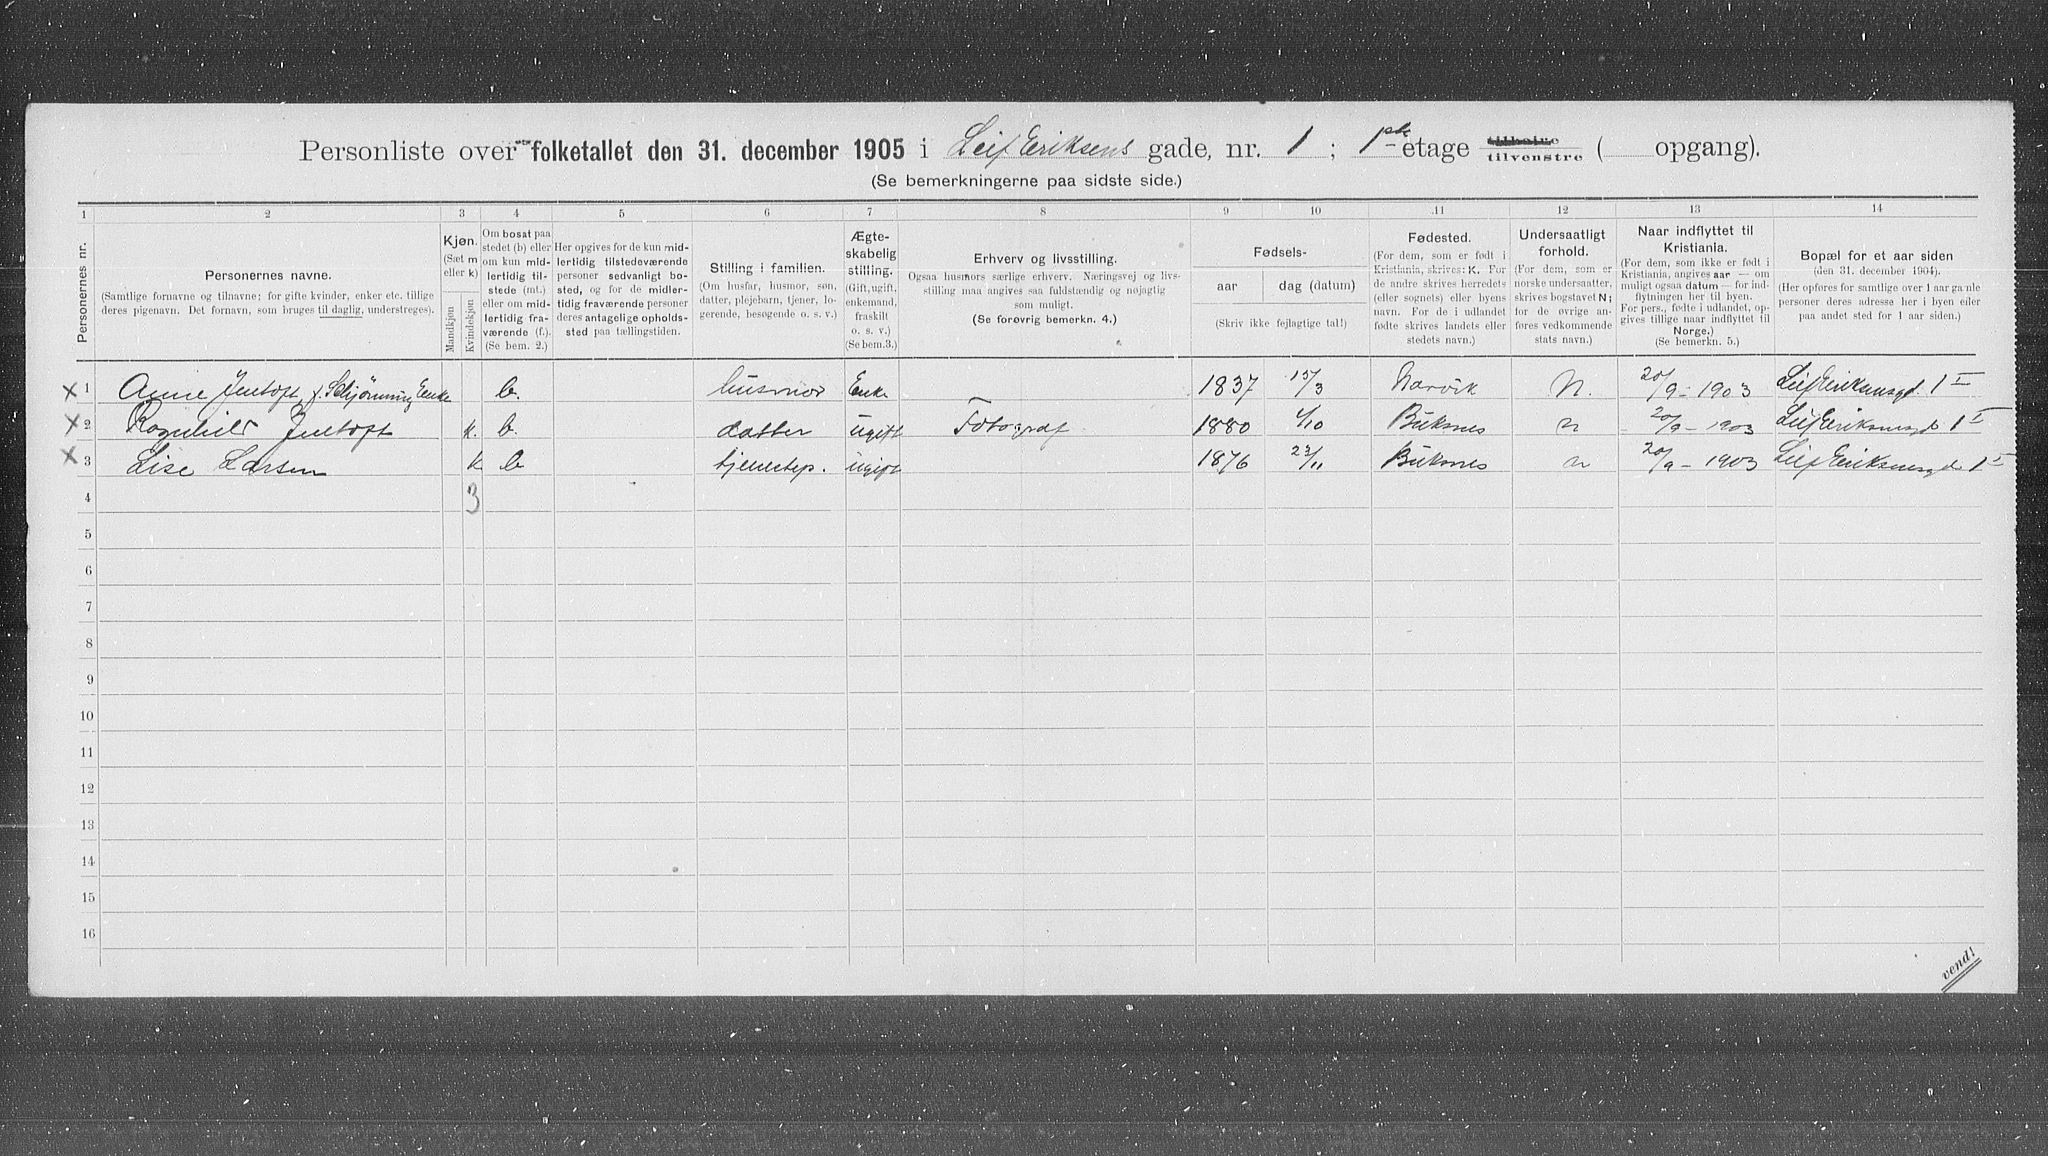 Personliste over folketallet den 31. december 1905 i Leif Eriksens gade, nr. 1 ; 1ste etage tilhøire tilvenstre ( opgang).
(Se bemerkningerne paa sidste side.)
1 2 3 4 5 6 7 8 9 10 11 12 13 14
Personernes nr.
Personernes navne.
(Samtlige fornavne og tilnavne; for gifte kvinder, enker etc. tillige
deres pigenavn. Det fornavn, som bruges til daglig, understreges).
Kjøn.
(Sæt m
eller k)
Mandkjøn
Kvindekjøn
Om bosat paa
stedet (b) eller
om kun midlertidig
tilstede (mt.)
eller om midlertidig
fraværende (f.).
(Se bem. 2.)
Her opgives for de kun midlertidig
tilstedeværende
personer sedvanligt bosted,
og for de midlertidig
fraværende personer
deres antagelige opholdssted
paa tællingstiden.
Stilling i familien.
(Om husfar, husmor, søn,
datter, plejebarn, tjener, logerende,
besøgende o. s. v.)
Ægteskabelig
stilling.
(Gift, ugift,
enkemand,
fraskilt
o. s. v.)
(Se bem.3.)
Erhverv og livsstilling.
Ogsaa husmors særlige erhverv. Næringsvej og livsstilling
maa angives saa fuldstændig og nøjagtig
som muligt.
(Se forøvrig bemerkn. 4.)
Fødsels-
aar dag (datum)
(Skriv ikke fejlagtige tal!)
Fødested.
(For dem, som er født i
Kristiania, skrives: K. For
de andre skrives herredets
(eller sognets) eller byens
navn. For de i udlandet
fødte skrives landets eller
stedets navn.)
Undersaatligt
forhold.
(For dem, som er
norske undersaatter,
skrives bogstavet N;
for de øvrige anføres
vedkommende
stats navn.)
Naar indflyttet til
Kristiania.
(For dem, som ikke er født i
Kristiania, angives aar — om
muligt ogsaa datum — for indflytningen
her til byen.
For pers., fødte i udlandet, opgives
tillige naar indflyttet til
Norge.)
(Se bemerkn. 5.)
Bopæl for et aar siden
(den 31. december 1904).
(Her opføres for samtlige over 1 aar gamle
personer deres adresse her i byen eller
paa andet sted for 1 aar siden.)
x 1 Anne Jentoft f. Schjønning Enke b. husmor Enke 1837 15/3 Narvik N. 20/9 - 1903 Leif Eriksensgd. 1 I
x 2 Ragnhild Jentoft k. b. datter ugift Fotograf 1880 4/10 Buksnes n 20/9 - 1903 Leif Eriksensgd 1 I
x 3 Lise Larsen k b tjenestep. ugift 1876 23/11 Buksnes n 20/9 - 1903 Leif Eriksensgd 1 I
4 3
5
6
7
8
9
10
11
12
13
14
15
16
vend!